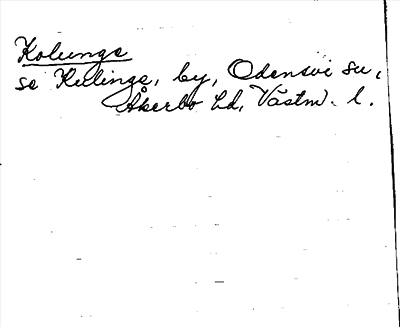 Kolunge
se Kulinge, by, Odensvi su,
Åkerbo hd, Västm. l.